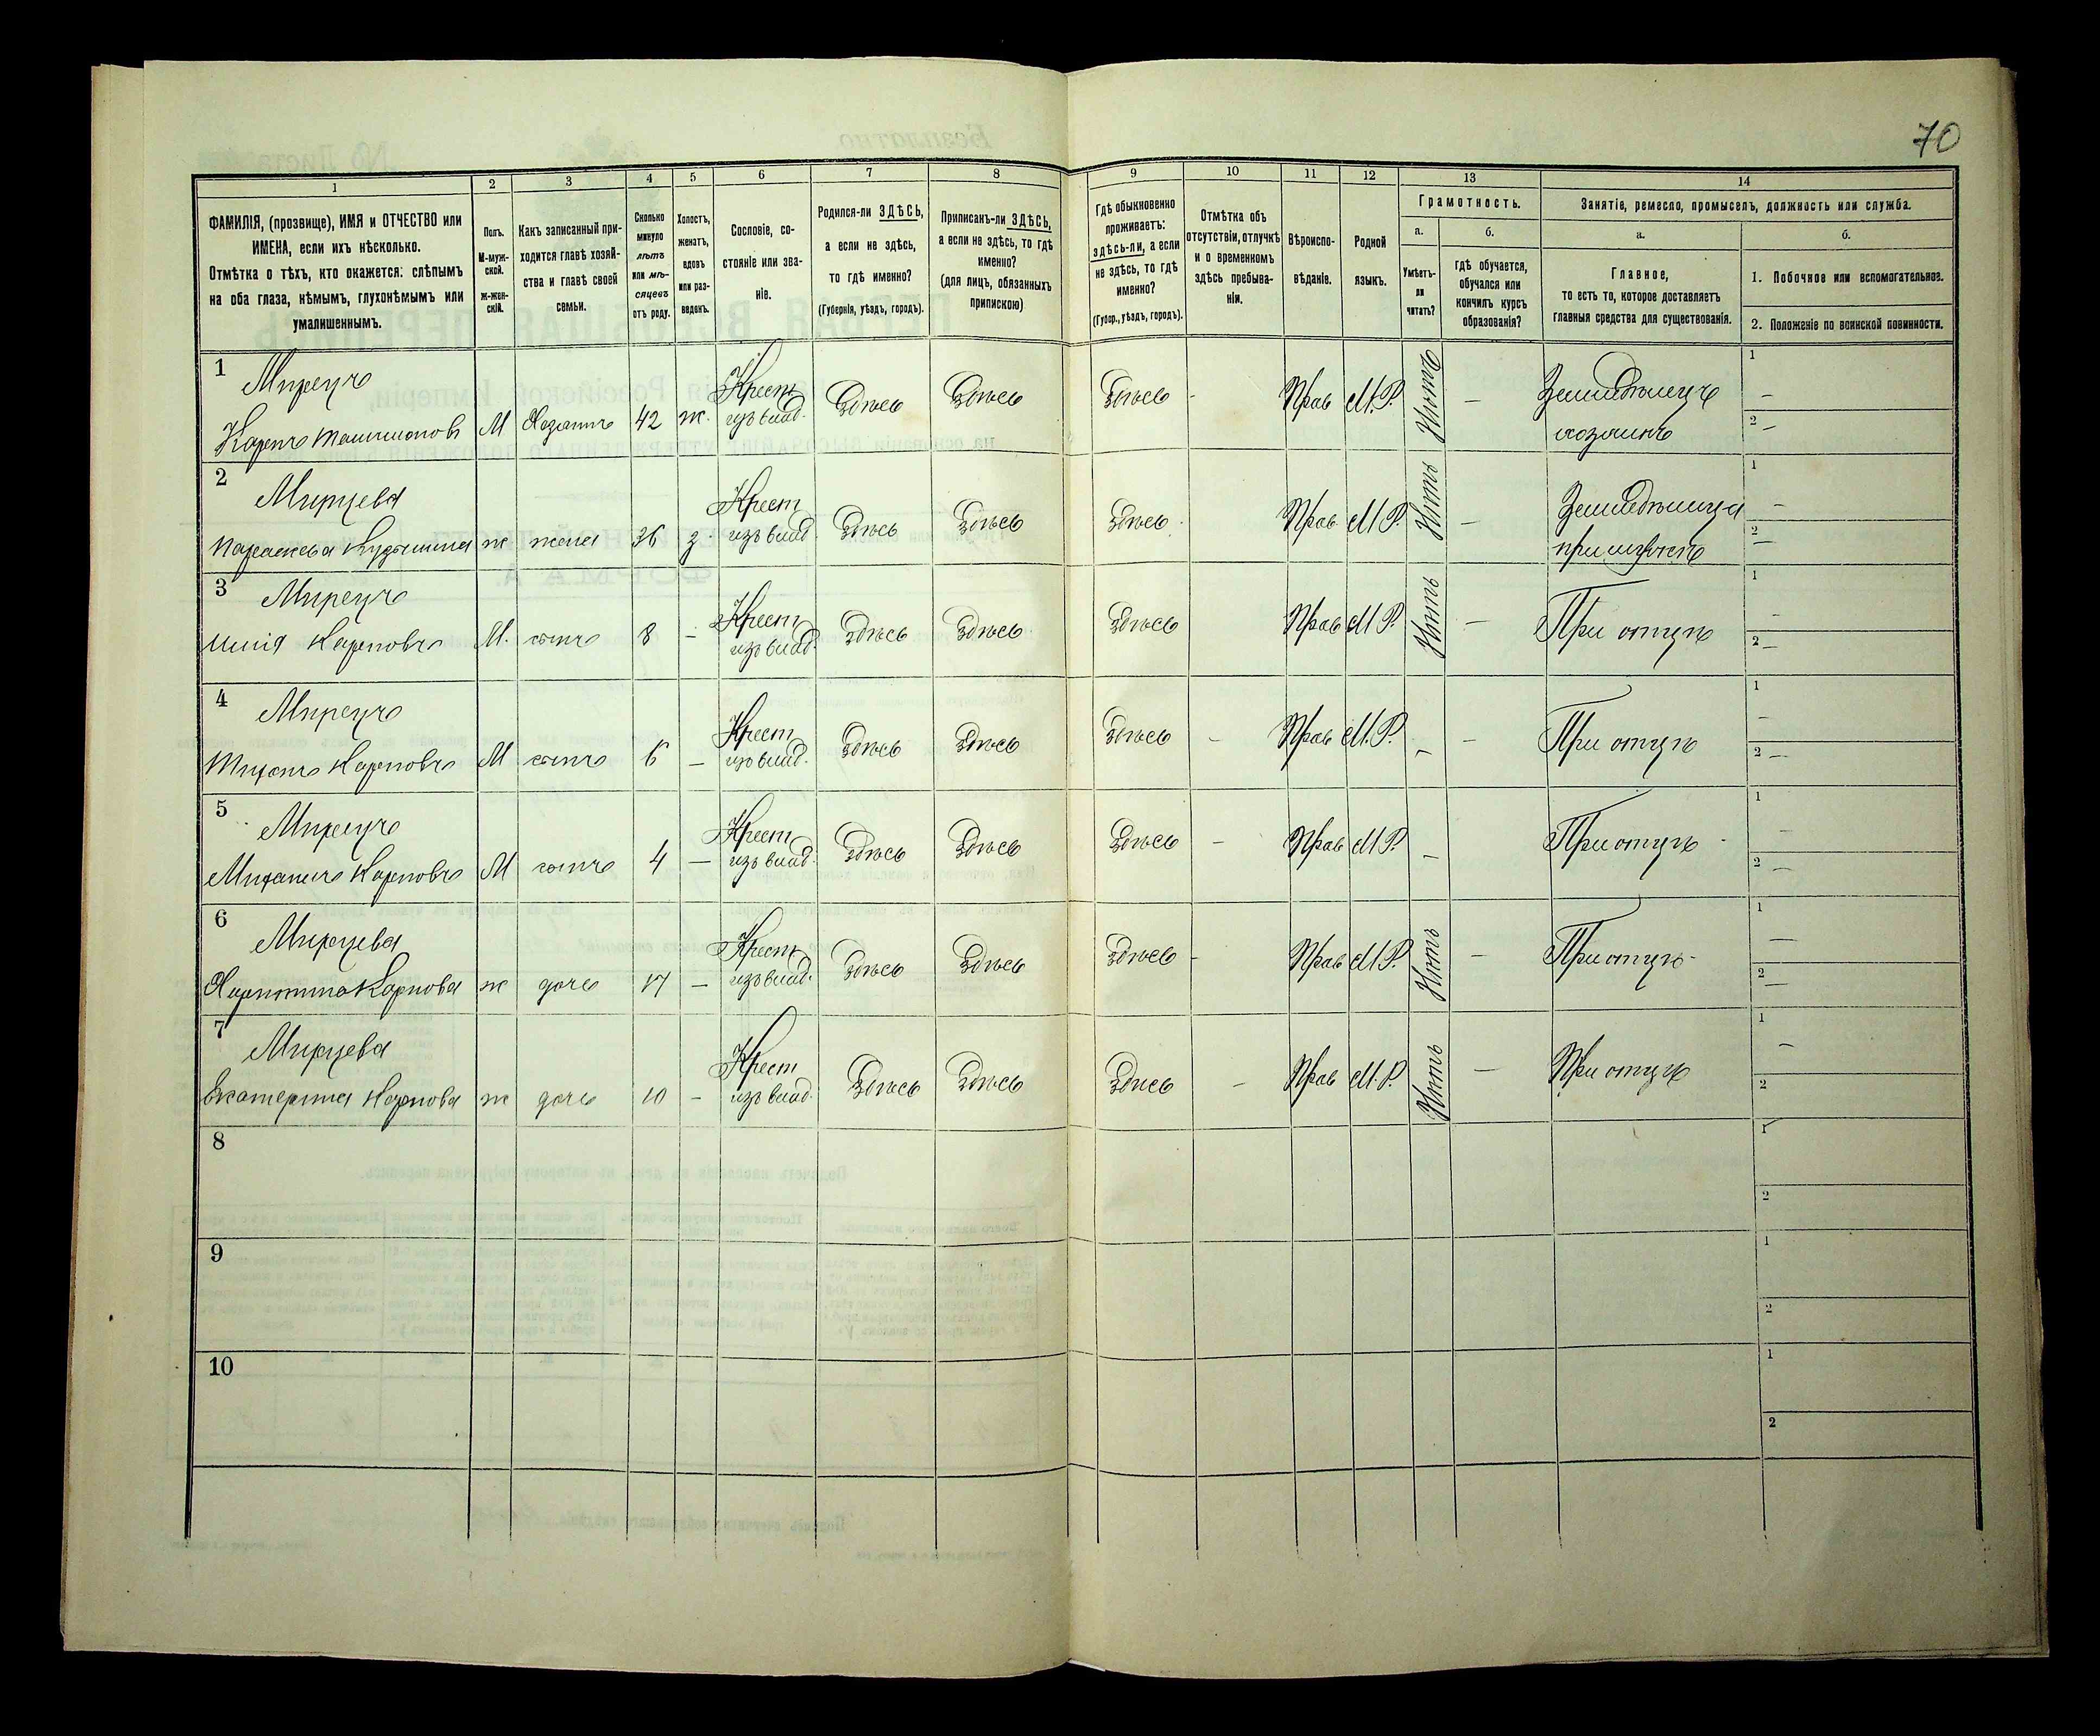 70
1 2 3 4 5 6 7 8 9 10 11 12 13 14
ФАМИЛІЯ, (прозвище), ИМЯ и ОТЧЕСТВО или
ИМЕНА, если ихъ нѣсколько.
Отмѣтка о тѣхъ, кто окажется: слѣпымъ
на оба глаза, нѣмымъ, глухонѣмымъ или
умалишеннымъ.
Полъ.
М-муж-
ской.
ж-жен-
скій.
Какъ записанный при-
ходится главѣ хозяй-
ства и главѣ своей
семьи.
Сколько
минуло
лѣтъ
или мѣ-
сяцевъ
отъ роду.
Холостъ,
женатъ,
вдовъ
или раз-
веденъ.
Сословіе, со-
стояніе или зва-
ніе.
Родился-ли ЗДѢСЬ,
а если не здѣсь,
то гдѣ именно?
(Губернія, уѣздъ, городъ).
Приписанъ-ли ЗДѢСЬ,
а если не здѣсь, то гдѣ
именно?
(для лицъ, обязанныхъ
припискою)
Гдѣ обыкновенно
проживаетъ:
здѣсь-ли, а если
не здѣсь, то гдѣ
именно?
(Губер., уѣздъ, городъ).
Отмѣтка объ
отсутствіи, отлучкѣ
и о временномъ
здѣсь пребыва-
ніи.
Вѣроиспо-
вѣданіе.
Родной
языкъ.
Грамотность.
а.
Умѣетъ-
ли
читать?
б.
гдѣ обучается,
обучался или
кончилъ курсъ
образованія?
Занятіе, ремесло, промыселъ, должность или служба.
а.
Главное,
то есть то, которое доставляетъ
главныя средства для существованія.
б.
1. Побочное или вспомогательное.
2. Положеніе по воинской повинности.
1 Мирецъ Крест. 1 –
Карпъ М Хозяинъ 42 ж. изъ влад. Здѣсь Здѣсь Здѣсь - Прав М.Р. Нѣтъ – Земледѣлецъ
хозяинъ 2 –
2 Мирцева Крест. 1 –
жена 36 з. изъ влад. Здѣсь Здѣсь Здѣсь Прав М.Р. Нѣтъ – Земледѣлица
при мужѣ 2 –
3 Мирецъ Крест. 1 –
Илія Карповъ М. сынъ 8 – изъ влад. Здѣсь Здѣсь Здѣсь Прав М.Р. Нѣтъ – При отцѣ 2 –
4 Мирецъ Крест. 1 –
Карповъ М сынъ 6 – изъ влад. Здѣсь Здѣсь Здѣсь – Прав М.Р. – – При отцѣ 2 –
5 Мирецъ Крест. 1 –
Карповъ М сынъ 4 – изъ влад. Здѣсь Здѣсь Здѣсь – Прав М.Р. – При отцѣ 2 –
6 Мирцева Крест. 1 –
Карпова ж дочь 17 – изъ влад. Здѣсь Здѣсь Здѣсь - Прав М.Р. Нѣтъ – При отцѣ 2 –
7 Мирцева Крест. 1 –
Екатерина Карпова ж дочь 10 – изъ влад. Здѣсь Здѣсь Здѣсь – Прав М.Р. Нѣтъ – При отцѣ 2
8 1
2
9 1
2
10 1
2